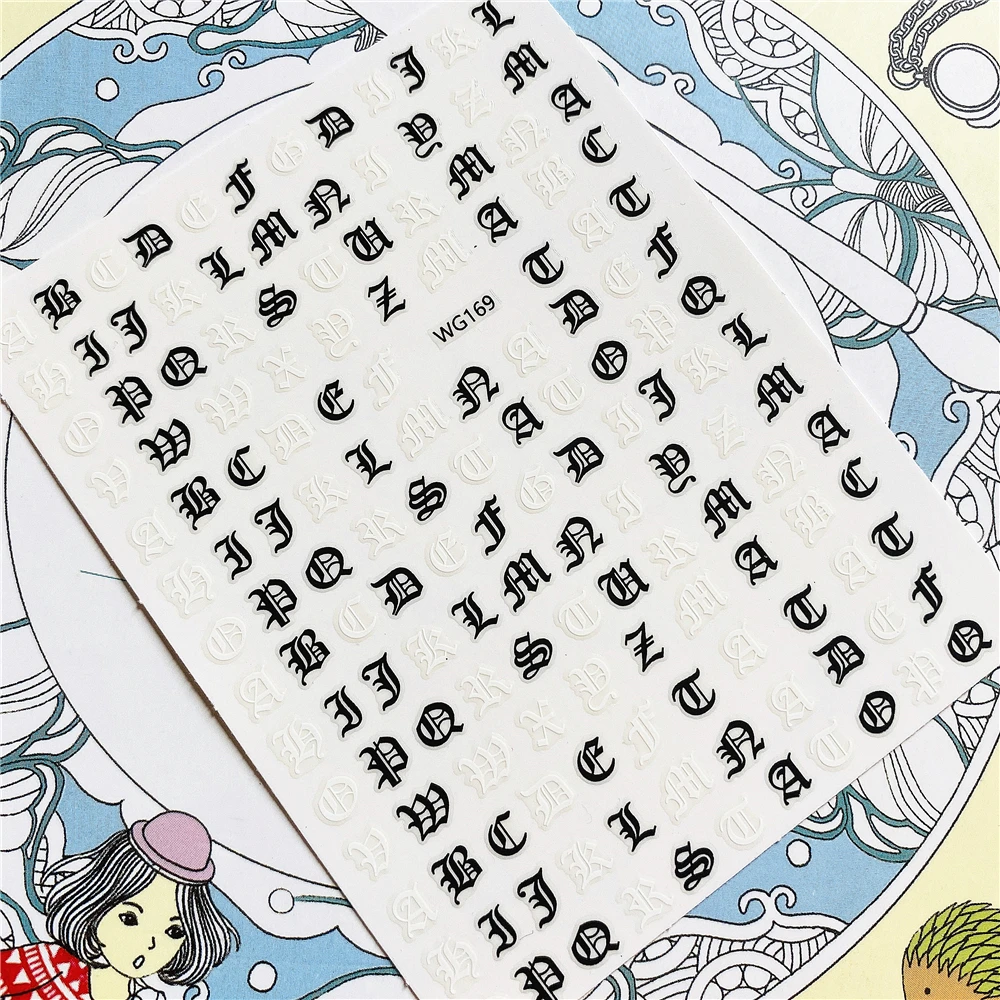 A B C D E F G D I J K L
H I J K L M N I Y Z M
O P Q R S T U R M N A
V W W X Y Z M A B C
A B C D E F WG169 T A T
H I J K L M N A D E F
O P Q R S T A T O P Q
A B C D E F G D I J K L
H I J K L M N I Y Z M
O P Q R S T U R M N A
V W W X Y Z M A B C
A B C D E F T A T A T
H I J K L M N A D E F
P Q R S T A T O P Q